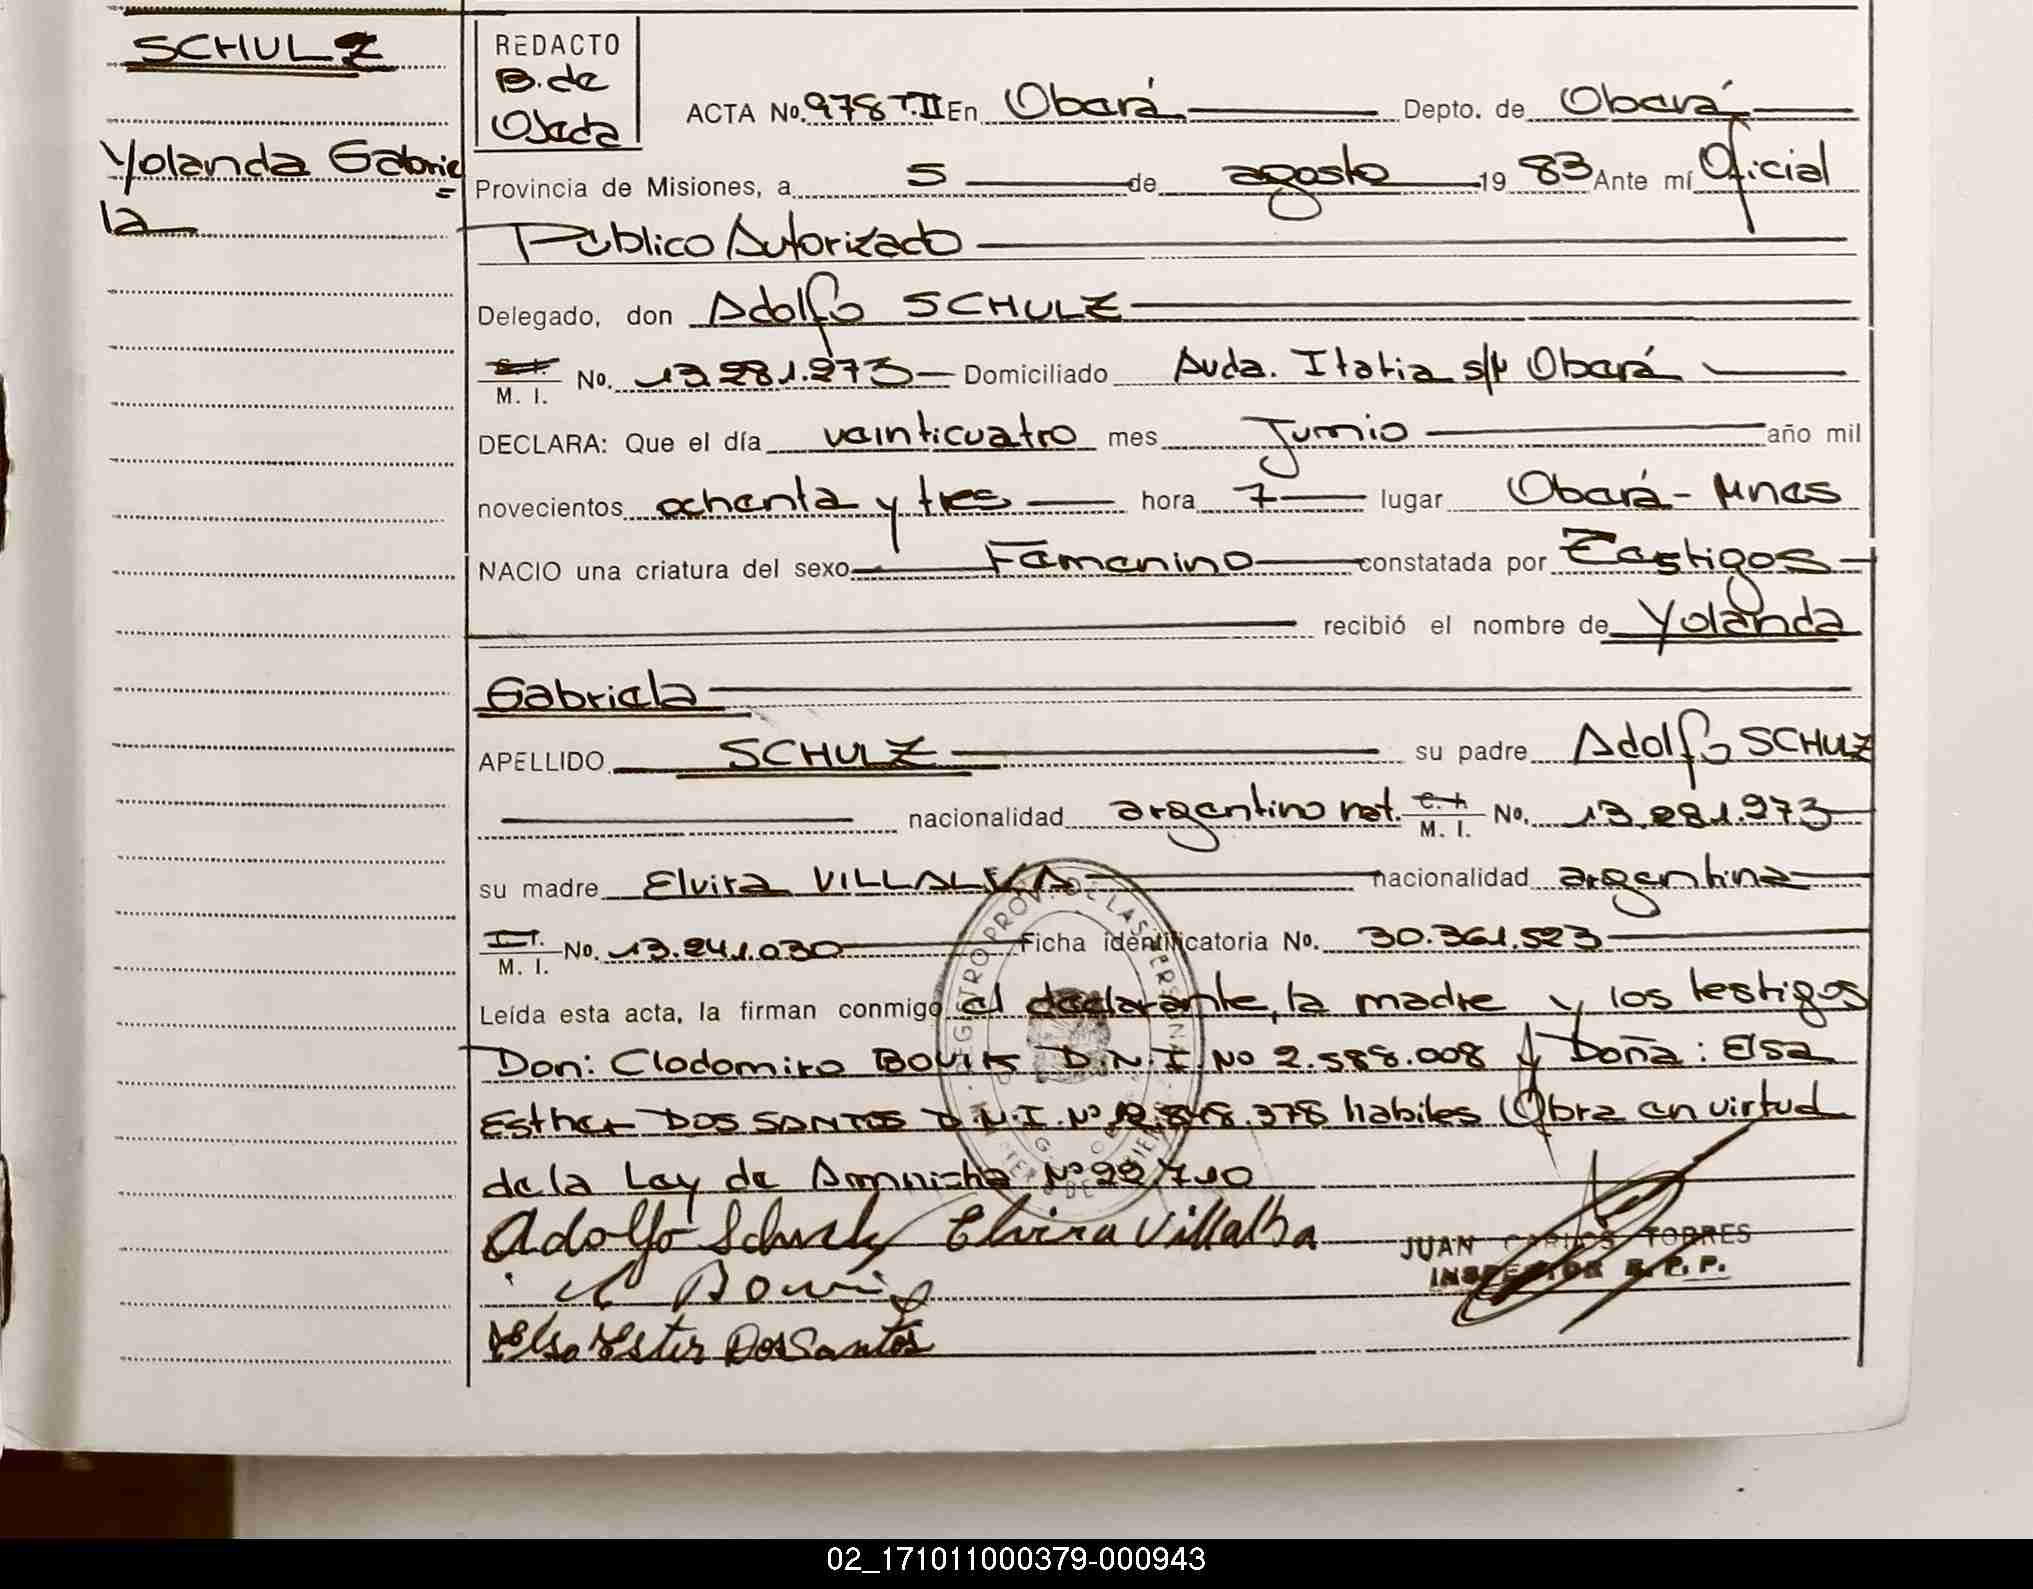 SCHULZ
Yolanda Gabrie=
la
REDACTO
B. de
Ojeda
ACTA No. 978 T.II En Oberá Depto. de Oberá
Provincia de Misiones, a 5 de agosto 1983 Ante mí Oficial
Público Autorizado
Delegado, don Adolfo SCHULZ
M. I. No. 13.281.973 Domiciliado Avda. Italia s/N Oberá
DECLARA: Que el día veinticuatro mes Junio año mil
novecientos ochenta y tres hora 7 lugar Oberá - Mnes
NACIO una criatura del sexo Femenino constatada por Testigos
recibió el nombre de Yolanda
Gabriela
APELLIDO SCHULZ su padre Adolfo SCHULZ
nacionalidad argentino nat. M. I. No. 13.281.973
su madre Elvira VILLALVA nacionalidad argentina
M. I. No. 13.241.030 Ficha identificatoria No. 30.361.523
Leída esta acta, la firman conmigo el declarante, la madre y los testigos
Don: Clodomiro D.N.I. No 2.588.008 y Doña: Elsa
Esther DOS SANTOS D.N.I. Nº 12.848.378 habiles Obra en virtud
de la Ley de Amnistia Nº 22.710
Adolfo Schulz Elvira Villalba
JUAN CARLOS TORRES
INSPECTOR R. P. P.
Elsa Ester Dos Santos
02_171011000379-000943